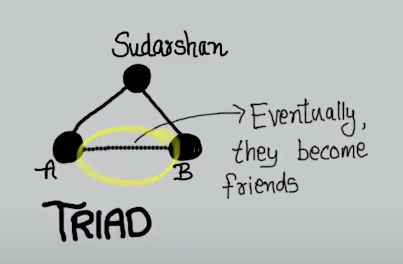 Sudarshan
A
B
Eventually,
they become
friends
TRIAD